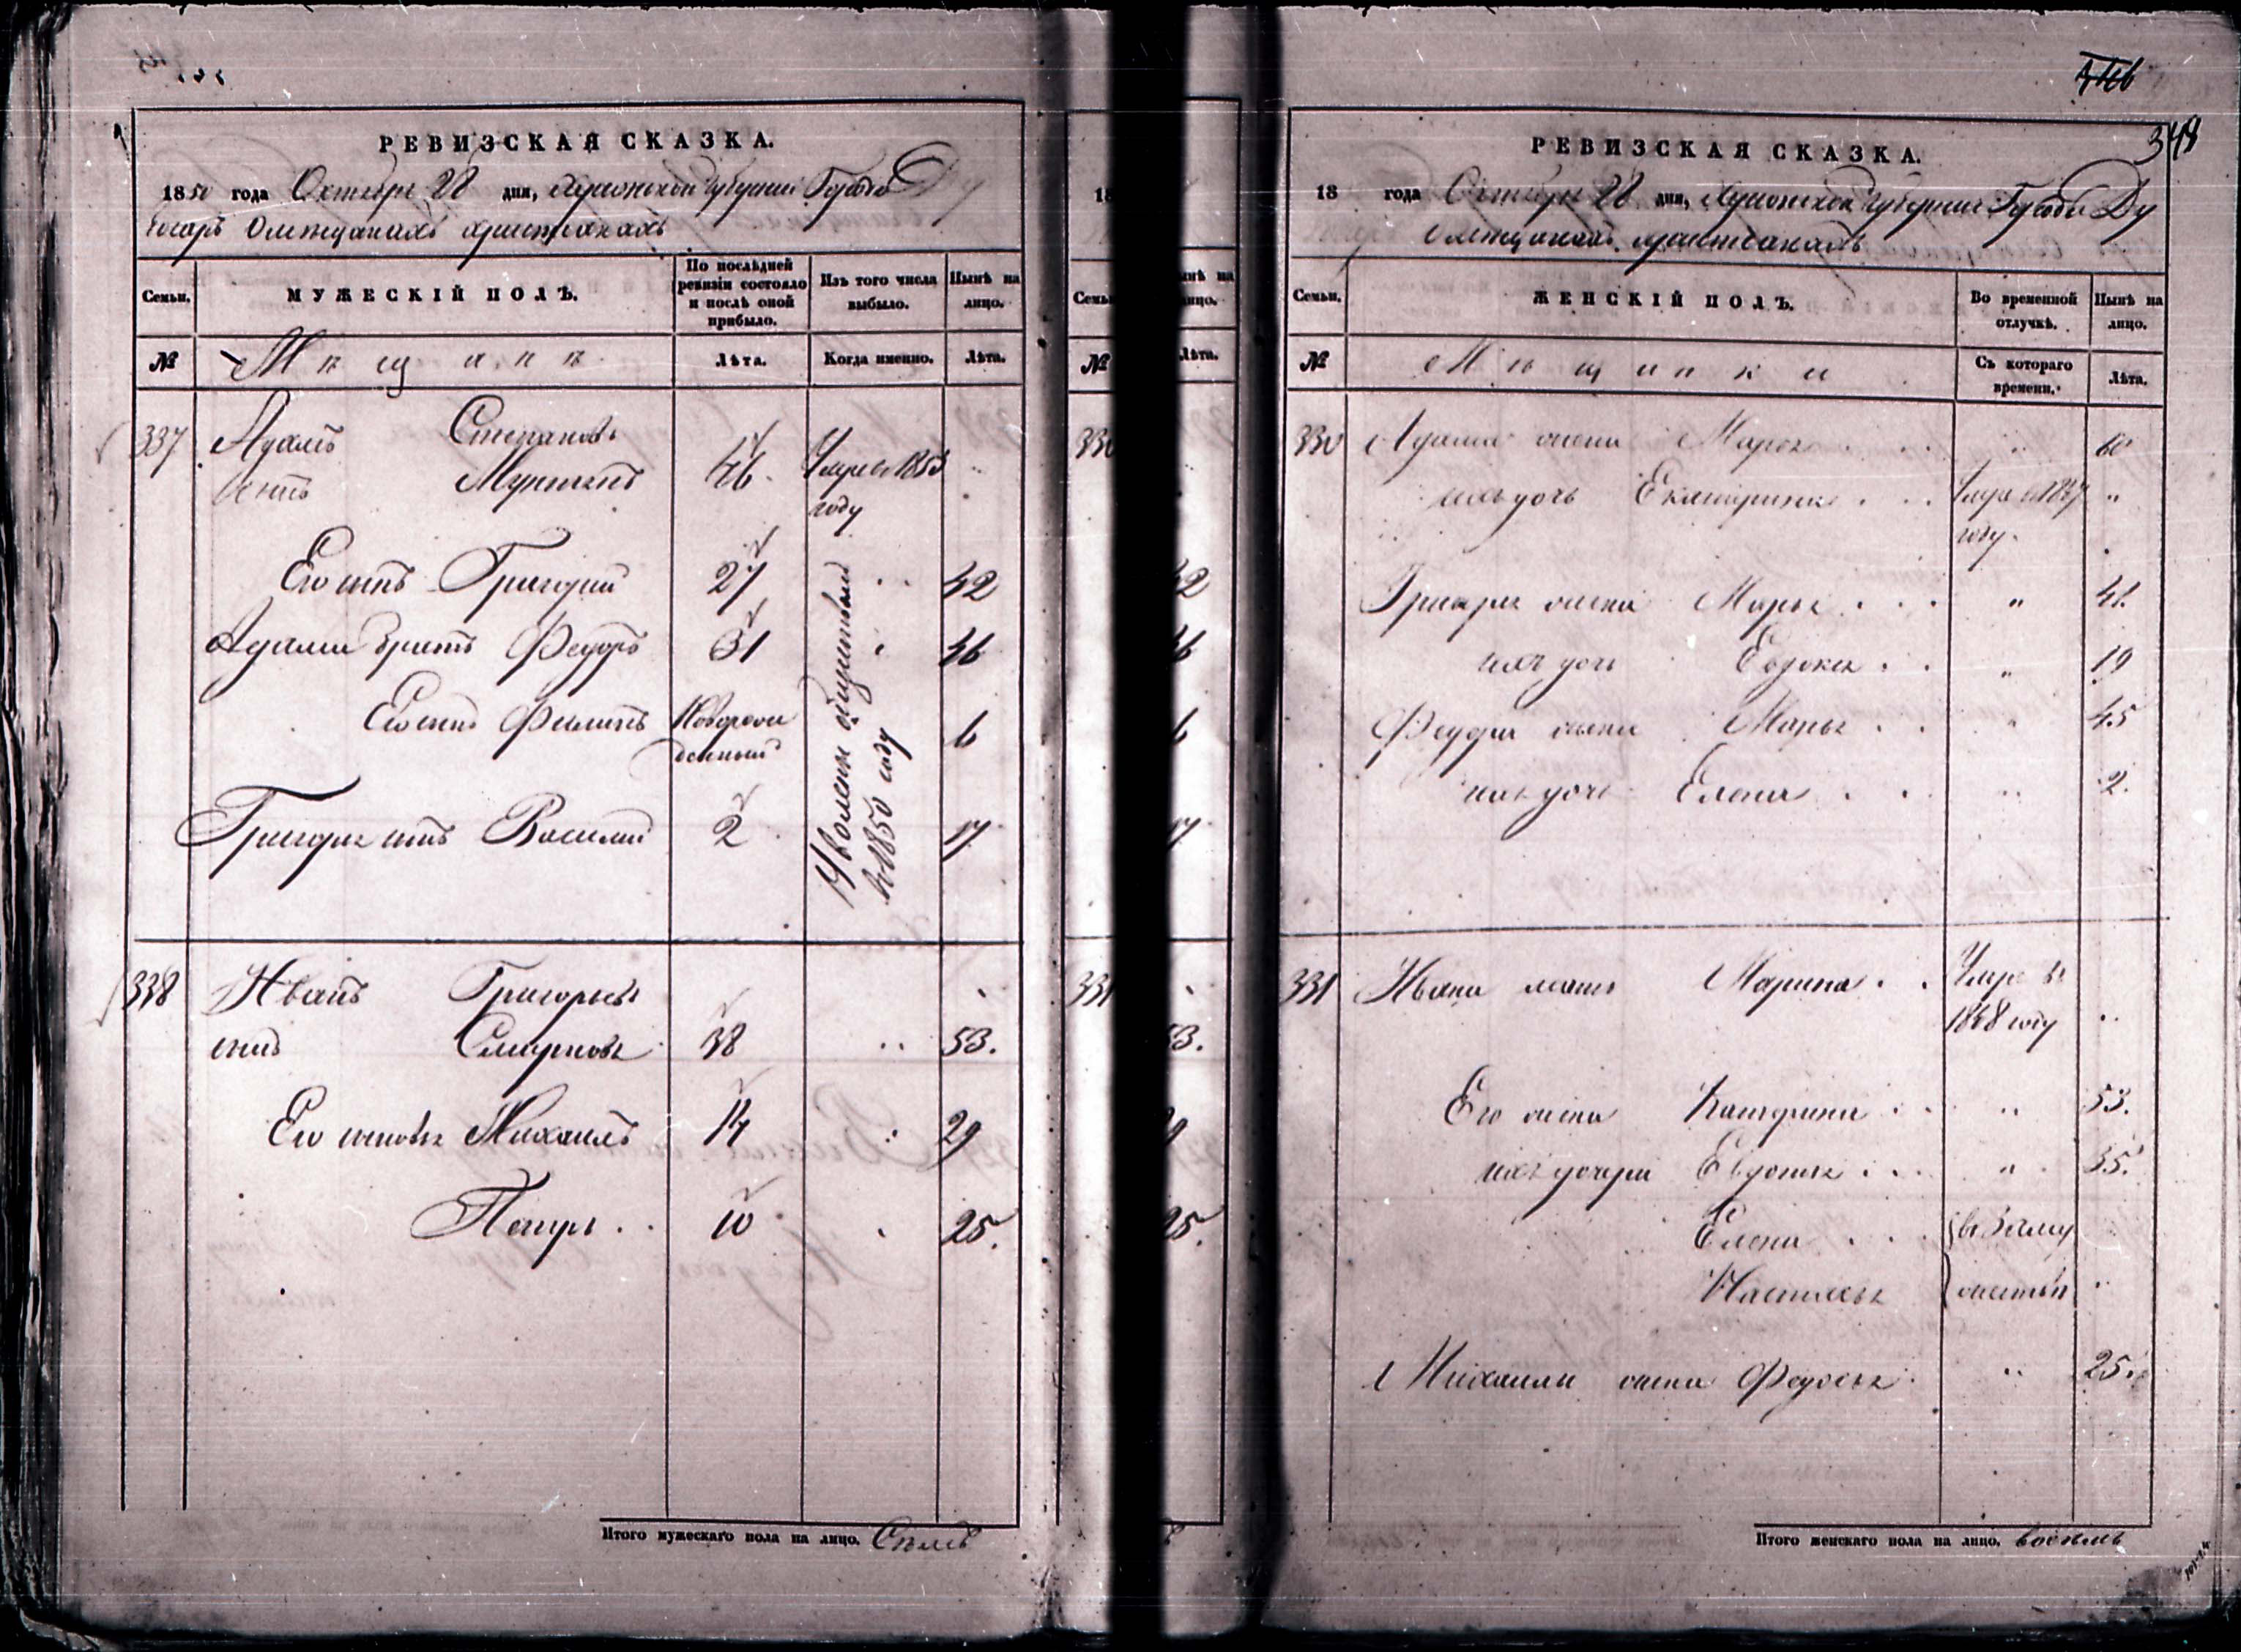 РЕВИЗСКАЯ СКАЗКА.
1850 года Октября 28 дня, Херсонской Губернии Города Ду
босаръ О мещанахъ христианахъ
Семьи.
МУЖЕСКІЙ ПОЛЪ.
По послѣдней ревизіи состояло и послѣ оной прибыло.
Изъ того числа выбыло.
Нынѣ на лицо.
№
Мѣщане
Лѣта.
Когда именно.
Лѣта.
337 Адамъ Степановъ
сынъ 46 Умре въ
году
Его сынъ Григорій 27 42
Адама братъ Федоръ 31 46
Его сынъ Филипъ Новорож 6
денный
Григорья сынъ Василий 2 17
Уволены
в 1850 году
338 Иванъ Григорьевъ
сынъ Смирновъ 38 53.
Его сыновья Михаилъ 14 29
Петръ 10 25.
Итого мужескаго пола на лицо. Семь
РЕВИЗСКАЯ СКАЗКА.
348
18 года Октября 28 дня, Херсонской Губернии Города Ду
О мещанахъ христианахъ
Семьи.
ЖЕНСКІЙ ПОЛЪ.
Во временной отлучкѣ.
Нынѣ на лицо.
№
Мѣщанки
Съ котораго времени.
Лѣта.
330 Адама жена Марья 60
ихъ дочь Екатерина
году
Григорья жена Марья 41
ихъ дочь Евдокия 19
Федора жена Марья 45
ихъ дочь Елена 2.
331 Ивана мать Марина Умре въ
1848 году
Его жена Катерина 53.
ихъ дочери Евдокия 35.
Елена въ Заму
Настасья жествѣ
Михаила жена Федосья 25.
Итого женскаго пола на лицо. восемь